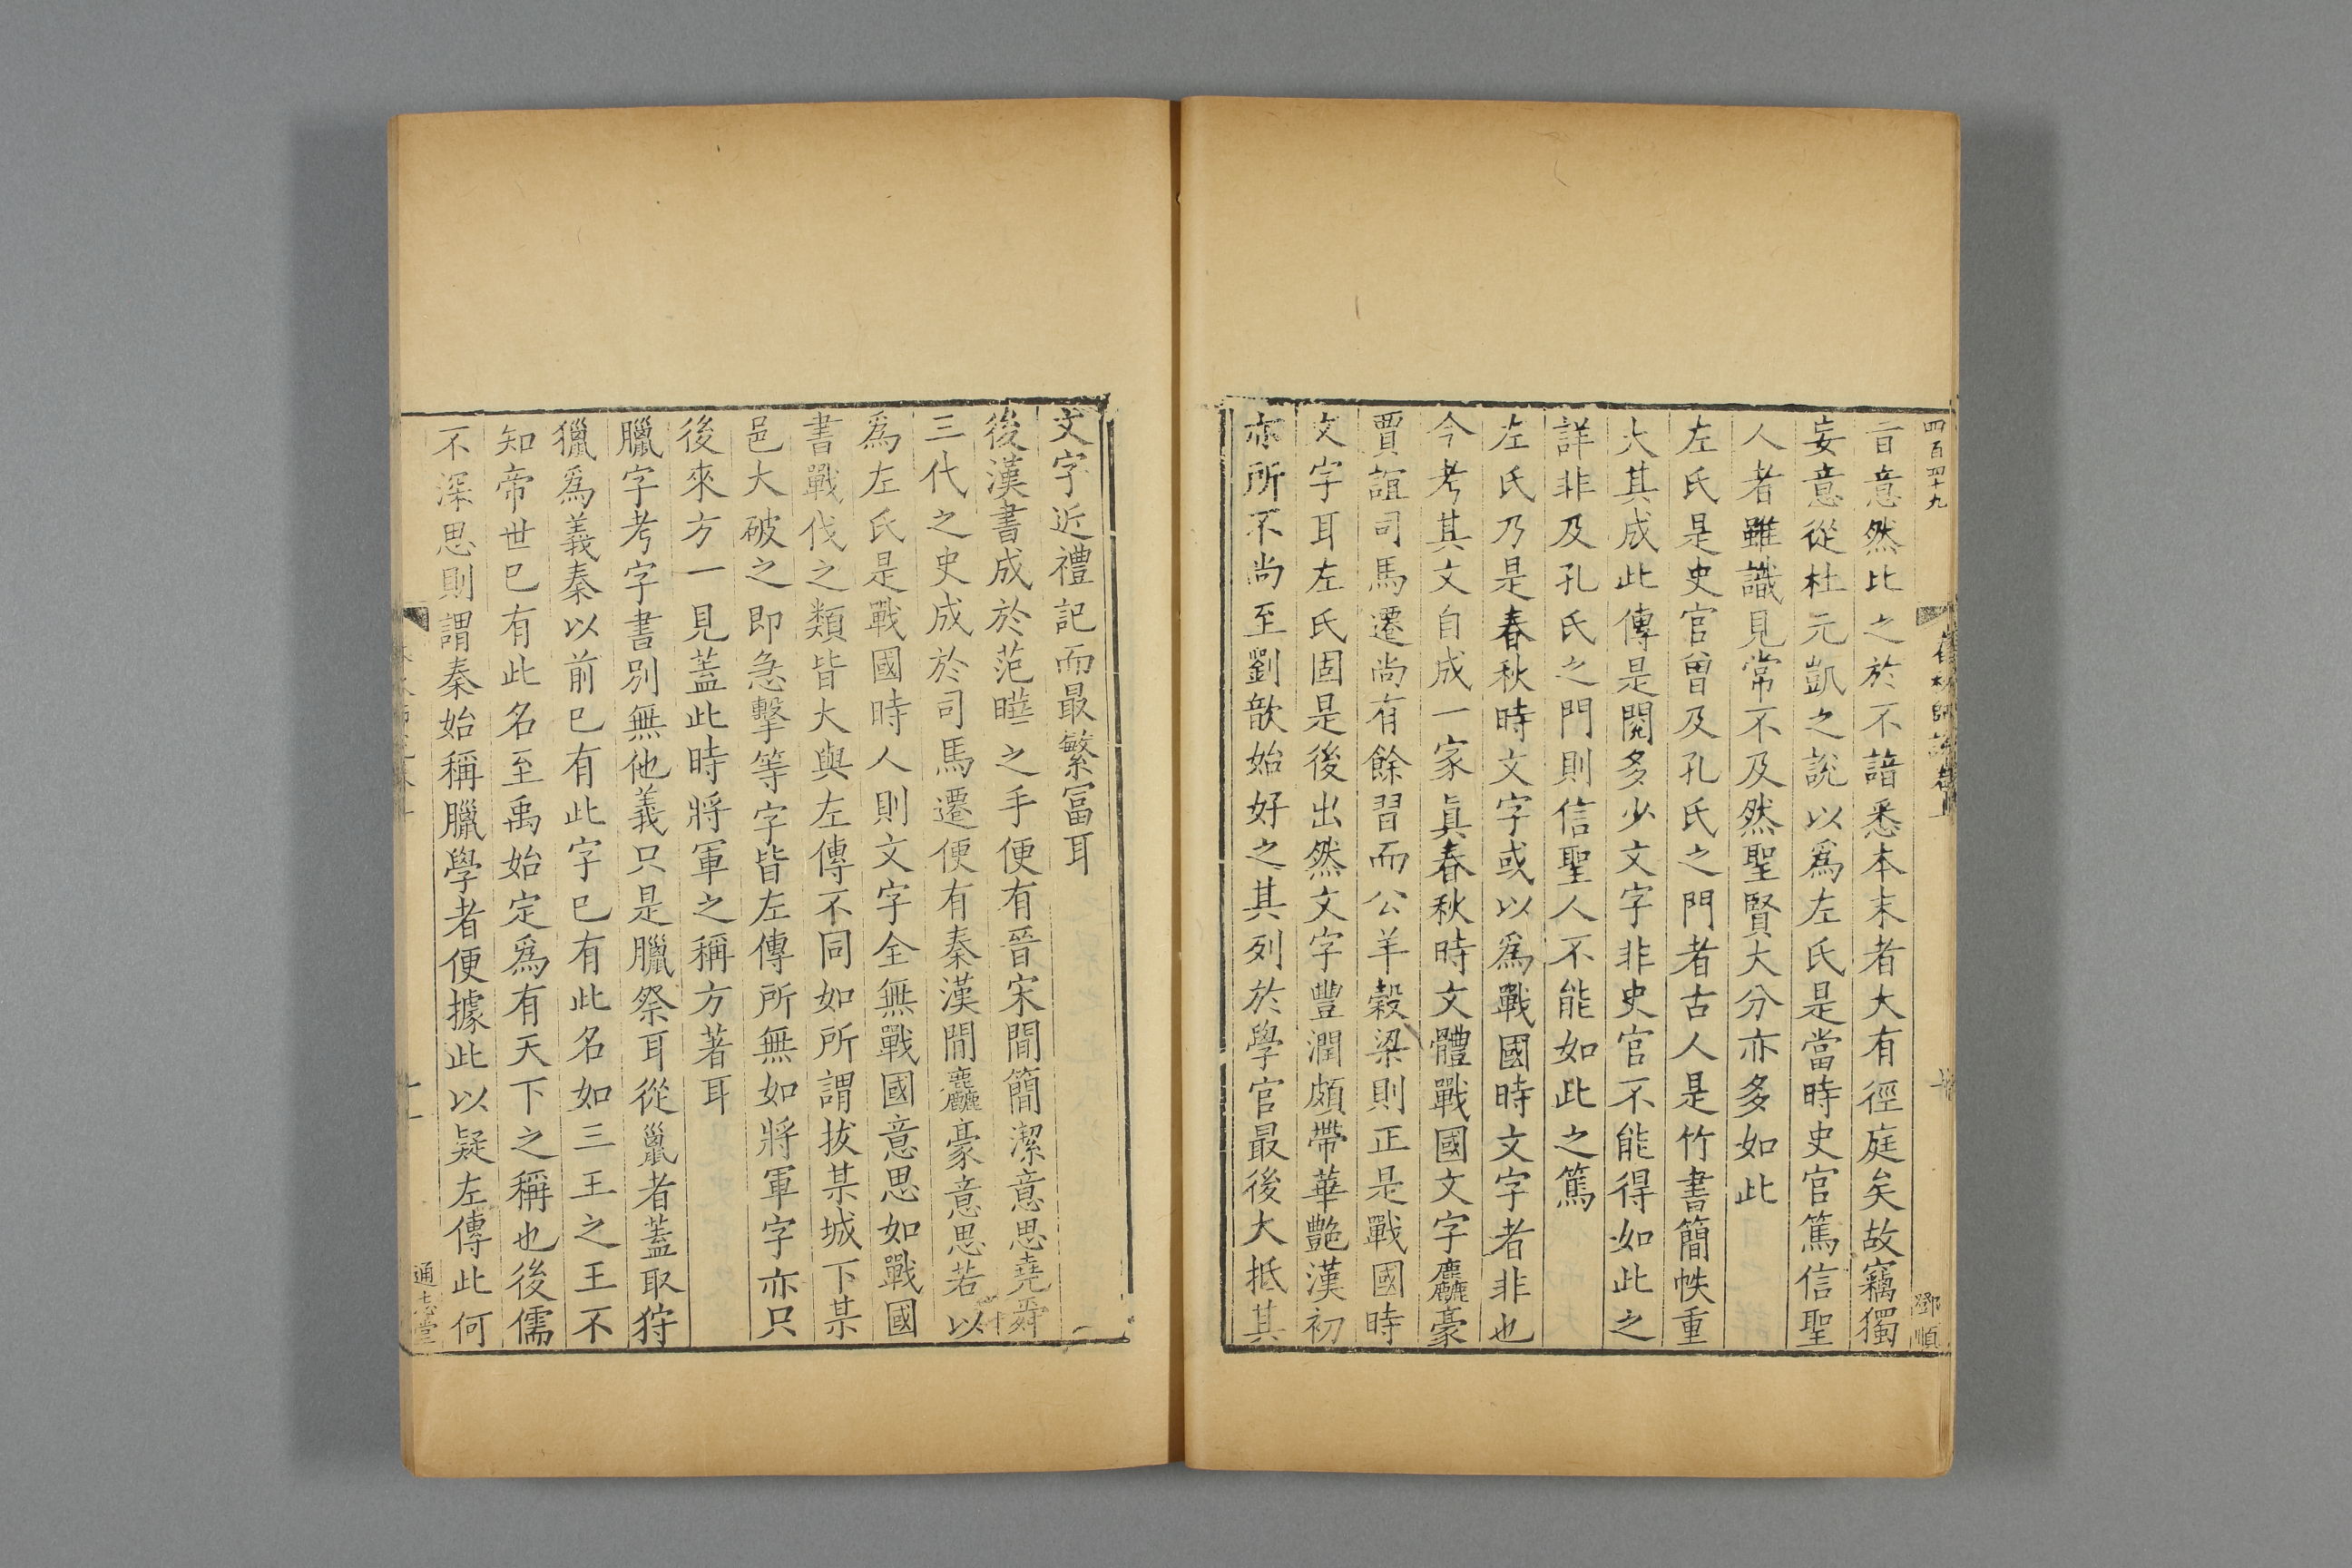 四百四十九
旨意然比之於不諳悉本末者大有徑庭矣故竊獨
妄意從杜元凱之說以爲左氏是當時史官篤信聖
人者雖識見常不及然聖賢大分亦多如此
左氏是史官曾及孔氏之門者古人是竹書簡帙重
大其成此傳是閱多少文字非史官不能得如此之
詳非及孔氏之門則信聖人不能如此之篤
左氏乃是春秋時文字或以爲戰國時文字者非也
今考其文自成一家眞春秋時文體戰國文字麤豪
賈誼司馬遷尚有餘習而公羊穀梁則正是戰國時
文字耳左氏固是後出然文字豐潤頗帶華艷漢初
亦所不尚至劉歆始好之其列於學官最後大抵其
鄧順
文字近禮記而最繁冨耳
後漢書成於范曄之手便有晉宋間簡潔意思堯舜
三代之史成於司馬遷便有秦漢間麤豪意思若以
爲左氏是戰國時人則文字全無戰國意思如戰國
書戰伐之類皆大與左傳不同如所謂拔某城下某
邑大破之即急擊等字皆左傳所無如將軍字亦只
後來方一見蓋此時將軍之稱方著耳
臘字考字書別無他義只是臘祭耳從巤者蓋取狩
獵爲義秦以前已有此字已有此名如三王之王不
知帝世已有此名至禹始定爲有天下之稱也後儒
不深思則謂秦始稱臘學者便據此以疑左傳此何
十一
通志堂